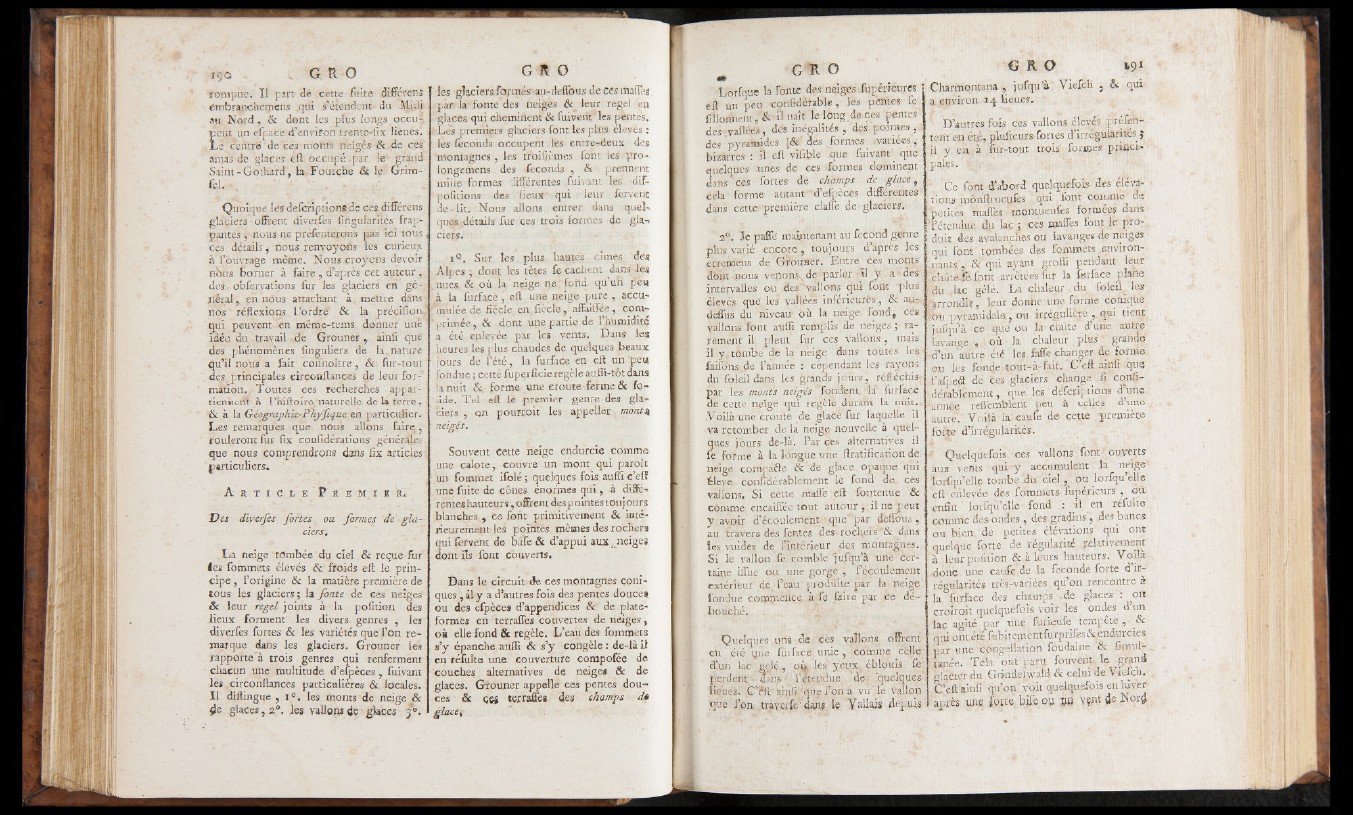 190 GRO
rompue. Il part de cette suite différens
embranchemens qui s'étendent du Midi
au Nord, & dont les plus longs occu-
pent un espace d'environ trente-six lieues.
Le centre de ces monts neigés & de ces
amas de glaces est occupé par le grand
Saint-Gothard, la Fourche & le Grim-
sel.
Quoique les descriptions de ces différens
glaciers offrent diverses singularités frap-
pantes, nous ne présenterons pas ici tous
ces détails, nous renvoyons les curieux
à l'ouvrage même. Nous croyons devoir
nous borner à faire, d'après cet auteur,
des observations sur les glaciers en gé-
néral, en nous attachant à mettre dans
nos réflexions l'ordre & la précision
qui peuvent en même-tems donner une
idée du travail de Grouner, ainsi que
des phénomènes singuliers de la nature
qu'il nous a fait connoître, & sur-tout
des principales circonstances de leur for-
mation. Toutes ces recherches appar-
tiennent à l'histoire naturelle de la terre,
& à la Géographie-Physique en particulier.
Les remarques que nous allons faire,
rouleront sur six considérations générales
que nous comprendrons dans six articles
particuliers.
ARTICLE PREMIER.
Des diverses sortes ou formes de gla-
ciers.
La neige tombée du ciel & reçue sur
les sommets élevés & froids est le prin-
cipe, l'origine & la matière première de
tous les glaciers; la fonte de ces neiges
& leur regel joints à la position des
lieux forment les divers genres, les
diverses sortes & les variétés que l'on re-
marque dans les glaciers. Grouner les
rapporte à trois genres qui renferment
chacun une multitude d'espèces, suivant
les circonstances particulières & locales.
Il distingue, 1°. les monts de neige &
de glaces, 2°. les vallons de glaces. 3°.
GRO
les glaciers formés au-dessous de ces masses
par la fonte des neiges & leur regel en
glaces qui cheminent & suivent les pentes.
Les premiers glaciers sont les plus élevés:
les seconds occupent les entre-deux des
montagnes, les troisièmes sont les pro-
longemens des seconds, & prennent
mille formes différentes suivant les dis-
positions des lieux qui leur servent
de lit. Nous allons entrer dans quel-
ques détails sur ces trois formes de gla-
ciers.
1°. Sur les plus hautes cimes des
Alpes, dont les têtes se cachent dans les
nues, & où la neige ne fond qu'un peu
à la surface, est une neige pure, accu-
mulée de siècle en siècle, affaissée, com-
primée, & dont une partie de l'humidité
a été enlevée par les vents. Dans les
heures les plus chaudes de quelques beaux
jours de l'été, la surface en est un peu
fondue; cette superficie regèle aussi-tôt dans
la nuit & forme une croute ferme & so-
lide. Tel est le premier genre des gla-
ciers, on pourroit les appeller monts
neigés.
Souvent cette neige endurcie comme
une calote, couvre un mont qui paroît
un sommet isolé; quelques fois aussi c'est
une suite de cônes énormes qui, à diffé-
rentes hauteurs, offrent des pointes toujours
blanches, ce sont primitivement & inté-
rieurement les pointes mêmes des rochers
qui servent de base & d'appui aux neiges
dont ils sont couverts.
Dans le circuit de ces montagnes coni-
ques, il y a d'autres fois des pentes douces
ou des espèces d'appendices & de plate-
formes en terrasses couvertes de neiges,
où elle fond & regèle. L'eau des sommets
s'y épanche aussi & s'y congèle: de-là il
en résulte une couverture composée de
couches alternatives de neiges & de
glaces. Grouner appelle ces pentes dou-
ces & ces terrasses des champs de
glace.
GRO
Lorsque la fonte des neiges supérieures
est un peu considérable, les pentes se
sillonnent, & il naît le long de ces pentes
des vallées, des inégalités, des pointes,
des pyramides & des formes variées,
bizarres: il est visible que suivant que
quelques unes de ces formes dominent
dans ces sortes de champs de glace,
cela forme autant d'espèces différentes
dans cette première classe de glaciers.
2°. Je passe maintenant au second genre
plus varié encore, toujours d'après les
erremens de Grouner. Entre ces monts
dont nous venons de parler il y a des
intervalles ou des vallons qui sont plus
élevés que les vallées inférieures, & au-
dessus du niveau où la neige fond, ces
vallons sont aussi remplis de neiges; ra-
rement il pleut sur ces vallons, mais
il y tombe de la neige dans toutes les
saisons de l'année: cependant les rayons
du soleil dans les grands jours, réfléchis
par les monts neigés fondent la surface
de cette neige qui regèle durant la nuit.
Voilà une croute de glace sur laquelle il
va retomber de la neige nouvelle à quel-
ques jours de-là. Par ces alternatives il
se forme à la longue une stratification de
neige compacte & de glace opaque qui
élève considérablement le fond de ces
vallons. Si cette masse est soutenue &
comme encaissée tout autour, il ne peut
y avoir d'écoulement que par dessous,
au travers des fentes des rochers & dans
les vuides de l'intérieur des montagnes.
Si le vallon se comble jusqu'à une cer-
taine issue ou une gorge, l'écoulement
extérieur de l'eau produite par la neige
fondue commence à se faire par ce dé-
bouché.
Quelques uns de ces vallons offrent
en été une surface unie, comme celle
d'un lac gelé, où les yeux éblouis se
perdent dans l'étendue de quelques
lieues. C'est ainsi que l'on a vu le vallon
que l'on traverse dans le Vallais depuis
GRO 191
Charmontana, jusqu'à Viesch, & qui
a environ 14 lieues.
D'autres fois ces vallons élevés présen-
tent en été, plusieurs sortes d'irrégularités;
il y en a sur-tout trois formes princi-
pales.
Ce sont d'abord quelquefois des éléva-
tions monstrueuses qui sont comme de
petites masses montueuses formées dans
l'étendue du lac; ces masses sont le pro-
duit des avalanches ou lavanges de neiges
qui sont tombées des sommets environ-
nants, & qui ayant grossi pendant leur
chute se sont arrêtées sur la surface plane
du lac gelé. La chaleur du soleil les
arrondit, leur donne une forme conique
ou pyramidale, ou irrégulière, qui tient
jusqu'à ce que ou la chute d'une autre
lavange, où la chaleur plus grande
d'un autre été les fasse changer de forme
ou les fonde tout-à-fait. C'est ainsi que
l'aspect de ces glaciers change si consi-
dérablement, que les descriptions d'une
année ressemblent peu à celles d'une
autre. Voilà la cause de cette première
sorte d'irrégularités.
Quelquefois ces vallons sont ouverts
aux vents qui y accumulent la neige
lorsqu'elle tombe du ciel, ou lorsqu'elle
est enlevée des sommets supérieurs, ou
enfin lorsqu'elle fond: il en résulte
comme des ondes, des gradins, des bancs
ou bien de petites élévations qui ont
quelque sorte de régularité relativement
à leur position & à leurs hauteurs. Voilà
donc une cause de la seconde sorte d'ir-
régularités très-variées qu'on rencontre à
la surface des champs de glaces: on
croiroit quelquefois voir les ondes d'un
lac agité par une furieuse tempête, &
qui ont été subitement surprises & endurcies
par une congellation soudaine & simul-
tanée. Tels ont paru souvent le grand
glacier du Grindelwald & celui de Viesch.
C'est ainsi qu'on voit quelquefois en hiver
après une forte bise ou un vent de Nord